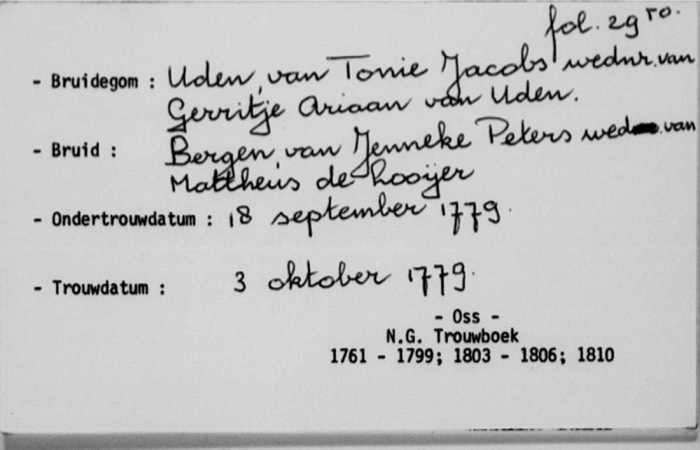 fol. 29 ro.
- Bruidegom : Uden, van Tonie Jacobs wednr. van
Gerritje Ariaan van Uden.
- Bruid : Bergen, van Jenneke Peters wed van
Mattheus de Looijer
- Ondertrouwdatum : 18 september 1779.
- Trouwdatum : 3 oktober 1779.
- Oss -
N.G. Trouwboek
1761 - 1799; 1803 - 1806; 1810